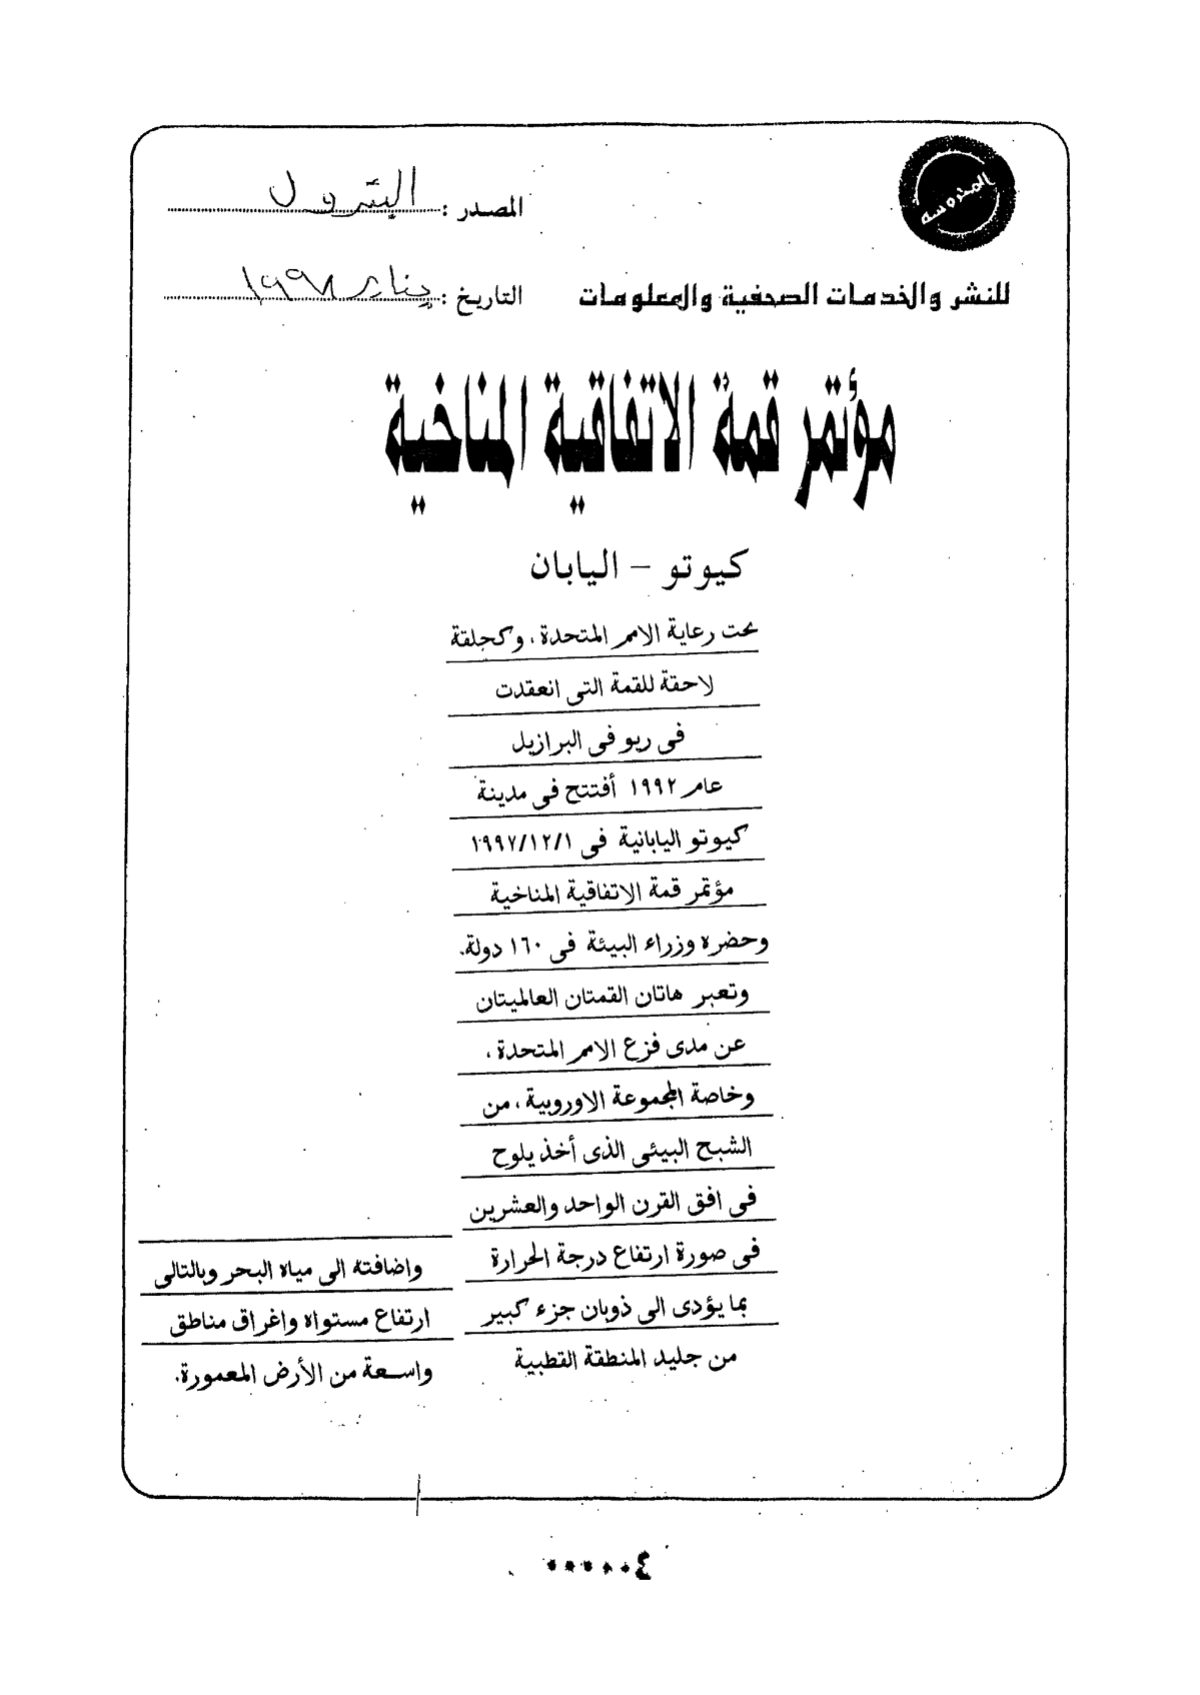 المحروسه
المصدر : البترول
للنشر والخدمات الصحفية والمعلومات
التاريخ : يناير ١٩٩٨
مؤتمر قمة الاتفاقية المناخية
كيوتو – اليابان
تحت رعاية الامم المتحدة، وكحلقة
لاحقة للقمة التى انعقدت
فى ريو فى البرازيل
عام ١٩٩٢ أفتتح فى مدينة
كيوتو اليابانية فى ١٩٩٧/١٢/١
مؤتمر قمة الاتفاقية المناخية
وحضره وزراء البيئة فى ١٦٠ دولة.
وتعبر هاتان القمتان العالميتان
عن مدى فزع الامم المتحدة،
وخاصة المجموعة الاوروبية، من
الشبح البيئى الذى أخذ يلوح
فى افق القرن الواحد والعشرين
فى صورة ارتفاع درجة الحرارة
بما يؤدى الى ذوبان جزء كبير
من جليد المنطقة القطبية
واضافته الى مياه البحر وبالتالى
ارتفاع مستواه واغراق مناطق
واسعة من الأرض المعمورة.